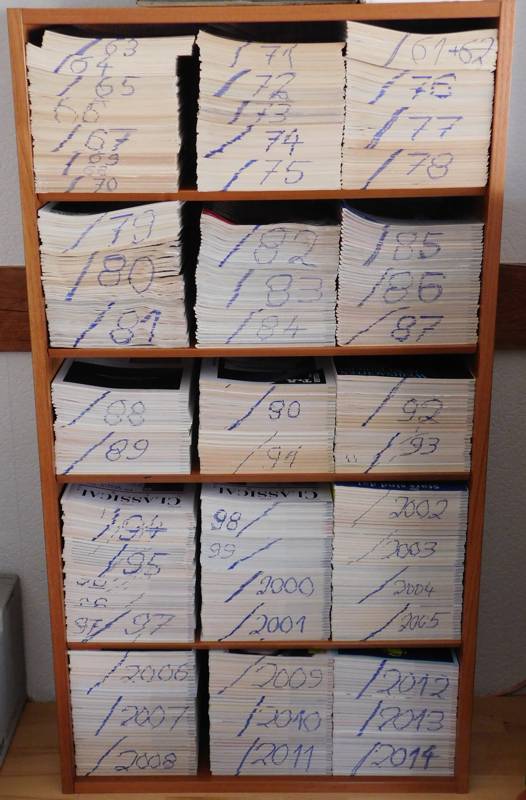 /63
64
/65
66
/67
68
69
70
/71
/72
/73
/74
/75
/61+62
/76
/77
/78
/79
/80
/81
/82
/83
/84
/85
/86
/87
/88
/89
/90
/91
/92
/93
CLASSICAL
/94
/95
97 /97
CLASSICAL
98/
99/
/2000
/2001
/2002
/2003
/2004
/2005
/2006
/2007
/2008
/2009
/2010
/2011
/2012
/2013
/2014